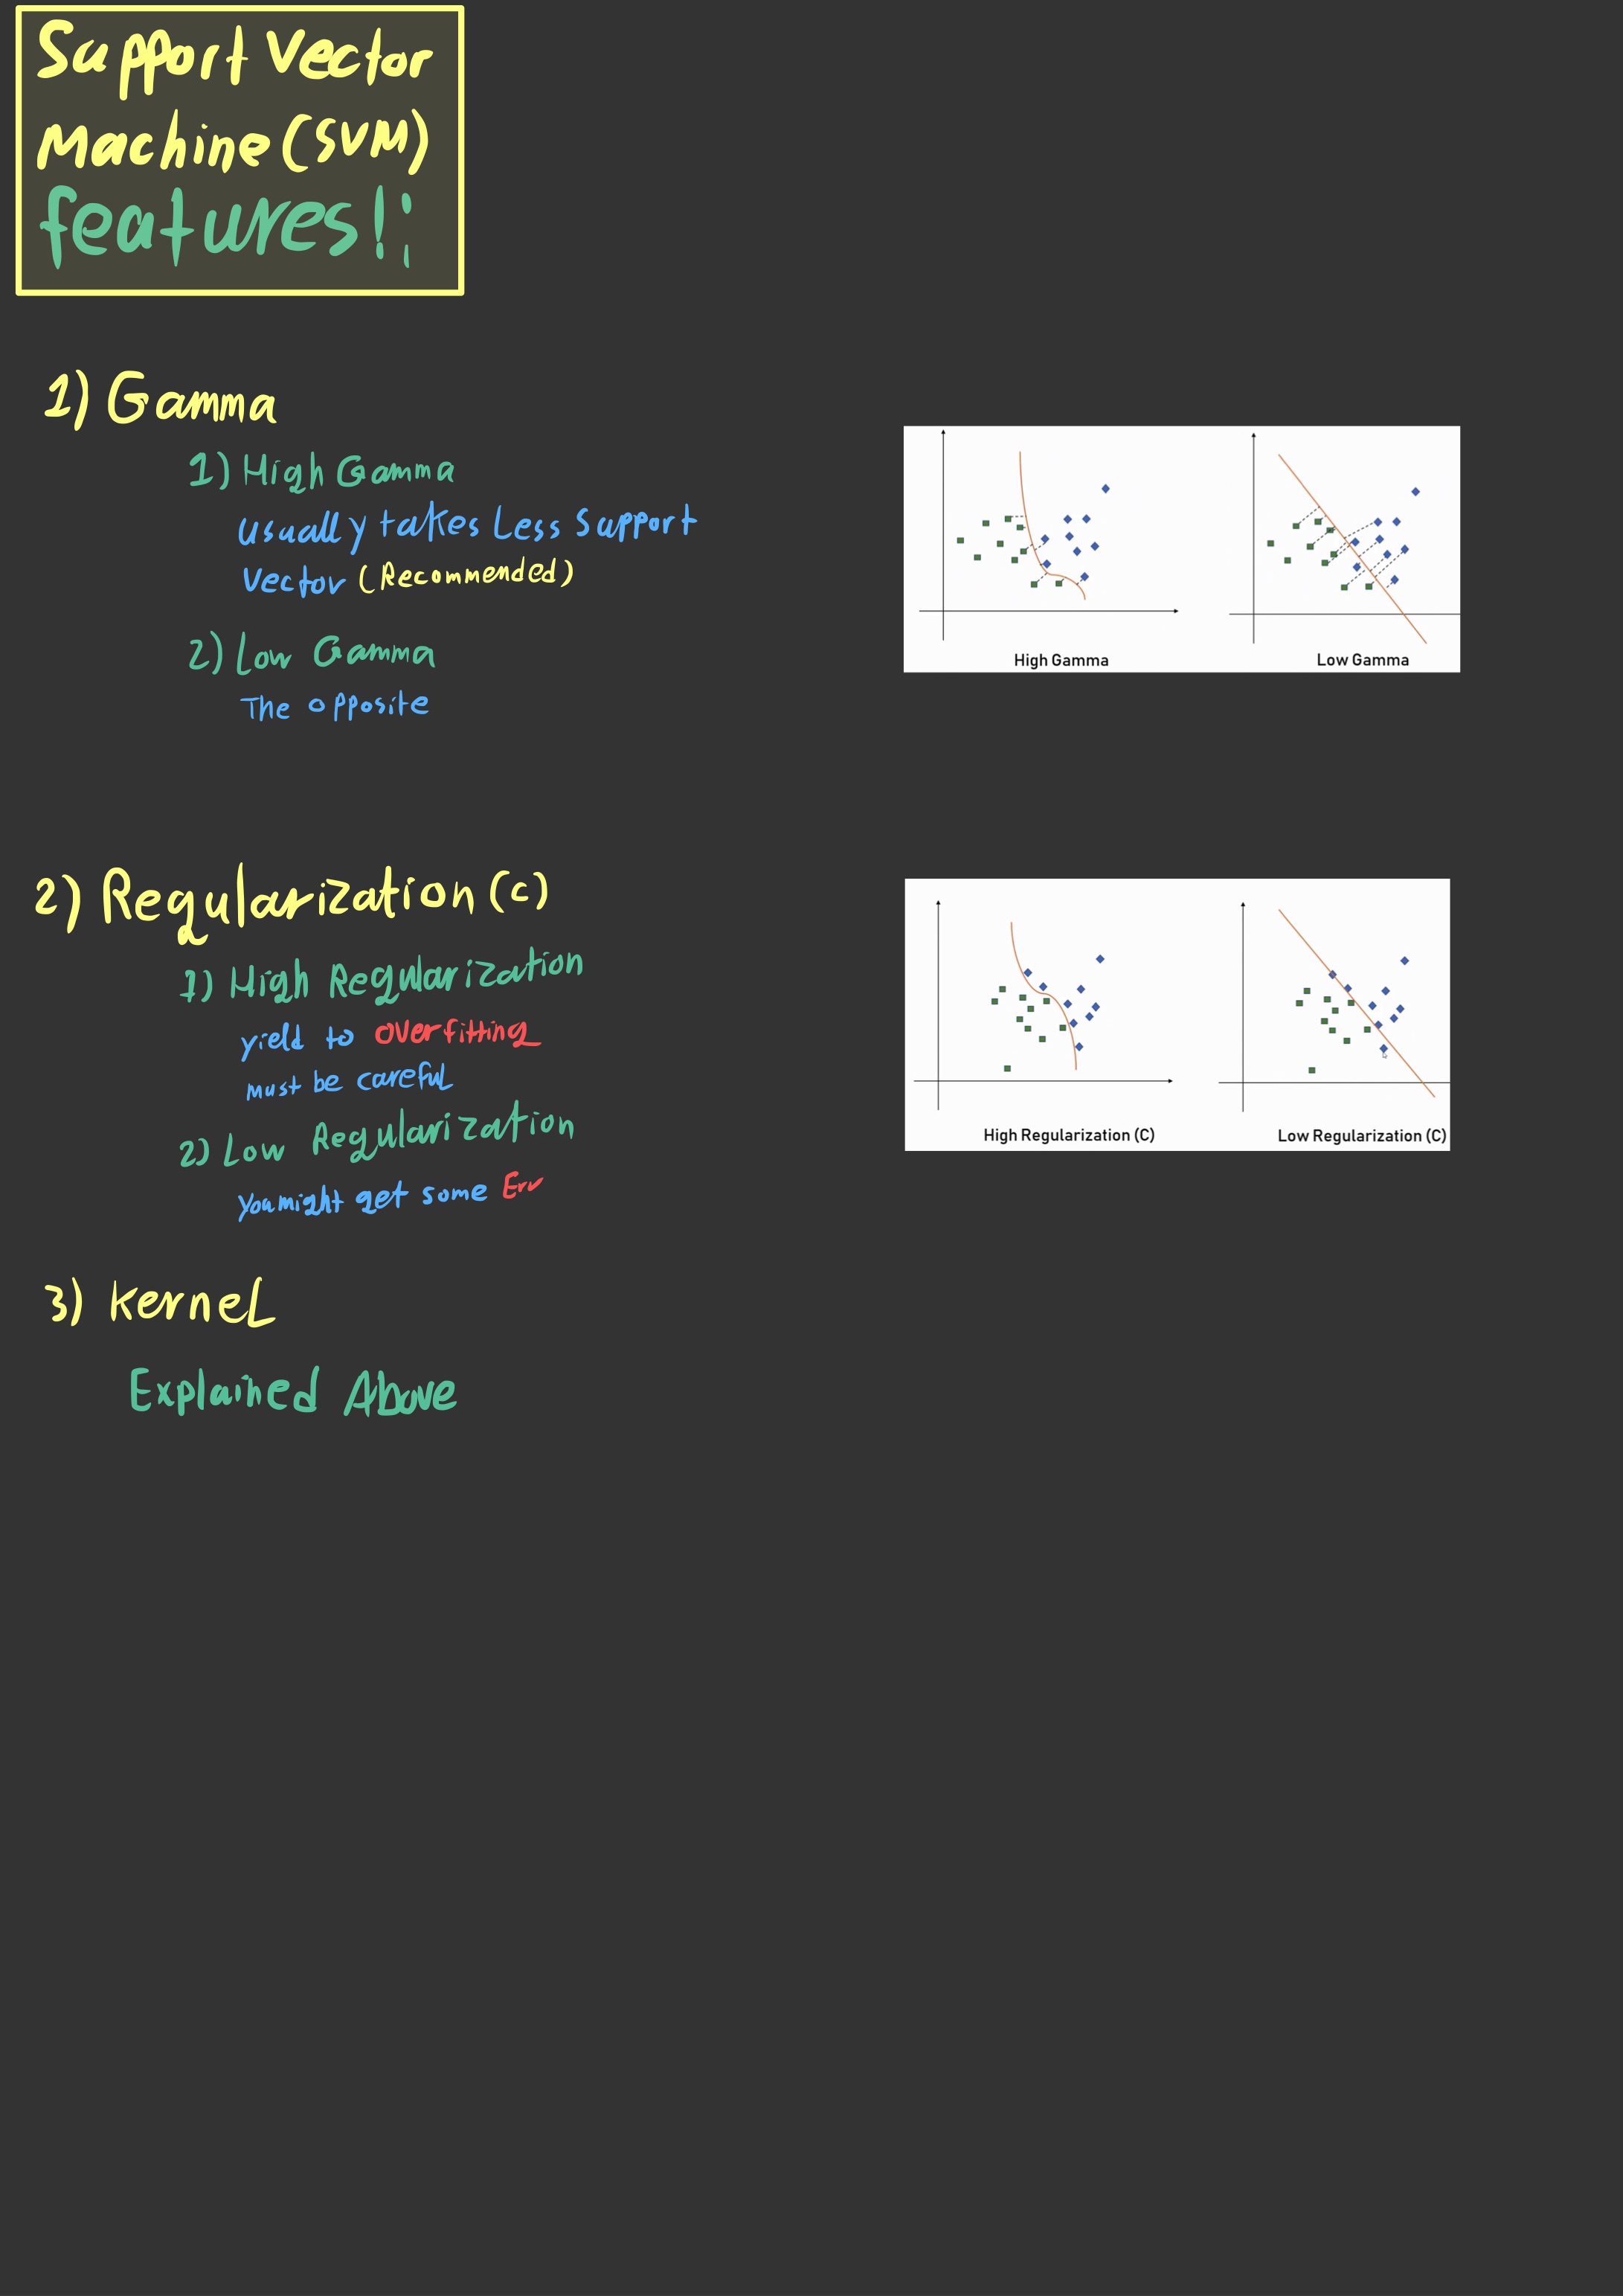 Support Vector
Machine (SVM)
features!!
1) Gamma
1) High Gamma
usually takes Less Support
Vector (Recommended)
2) Low Gamma
The opposite
High Gamma
Low Gamma
2) Regularization (c)
1) High Regularization
yield to overfitting
must be careful
2) Low Regularization
you might get some Err
High Regularization (C)
Low Regularization (C)
3) Kernel
Explained Above